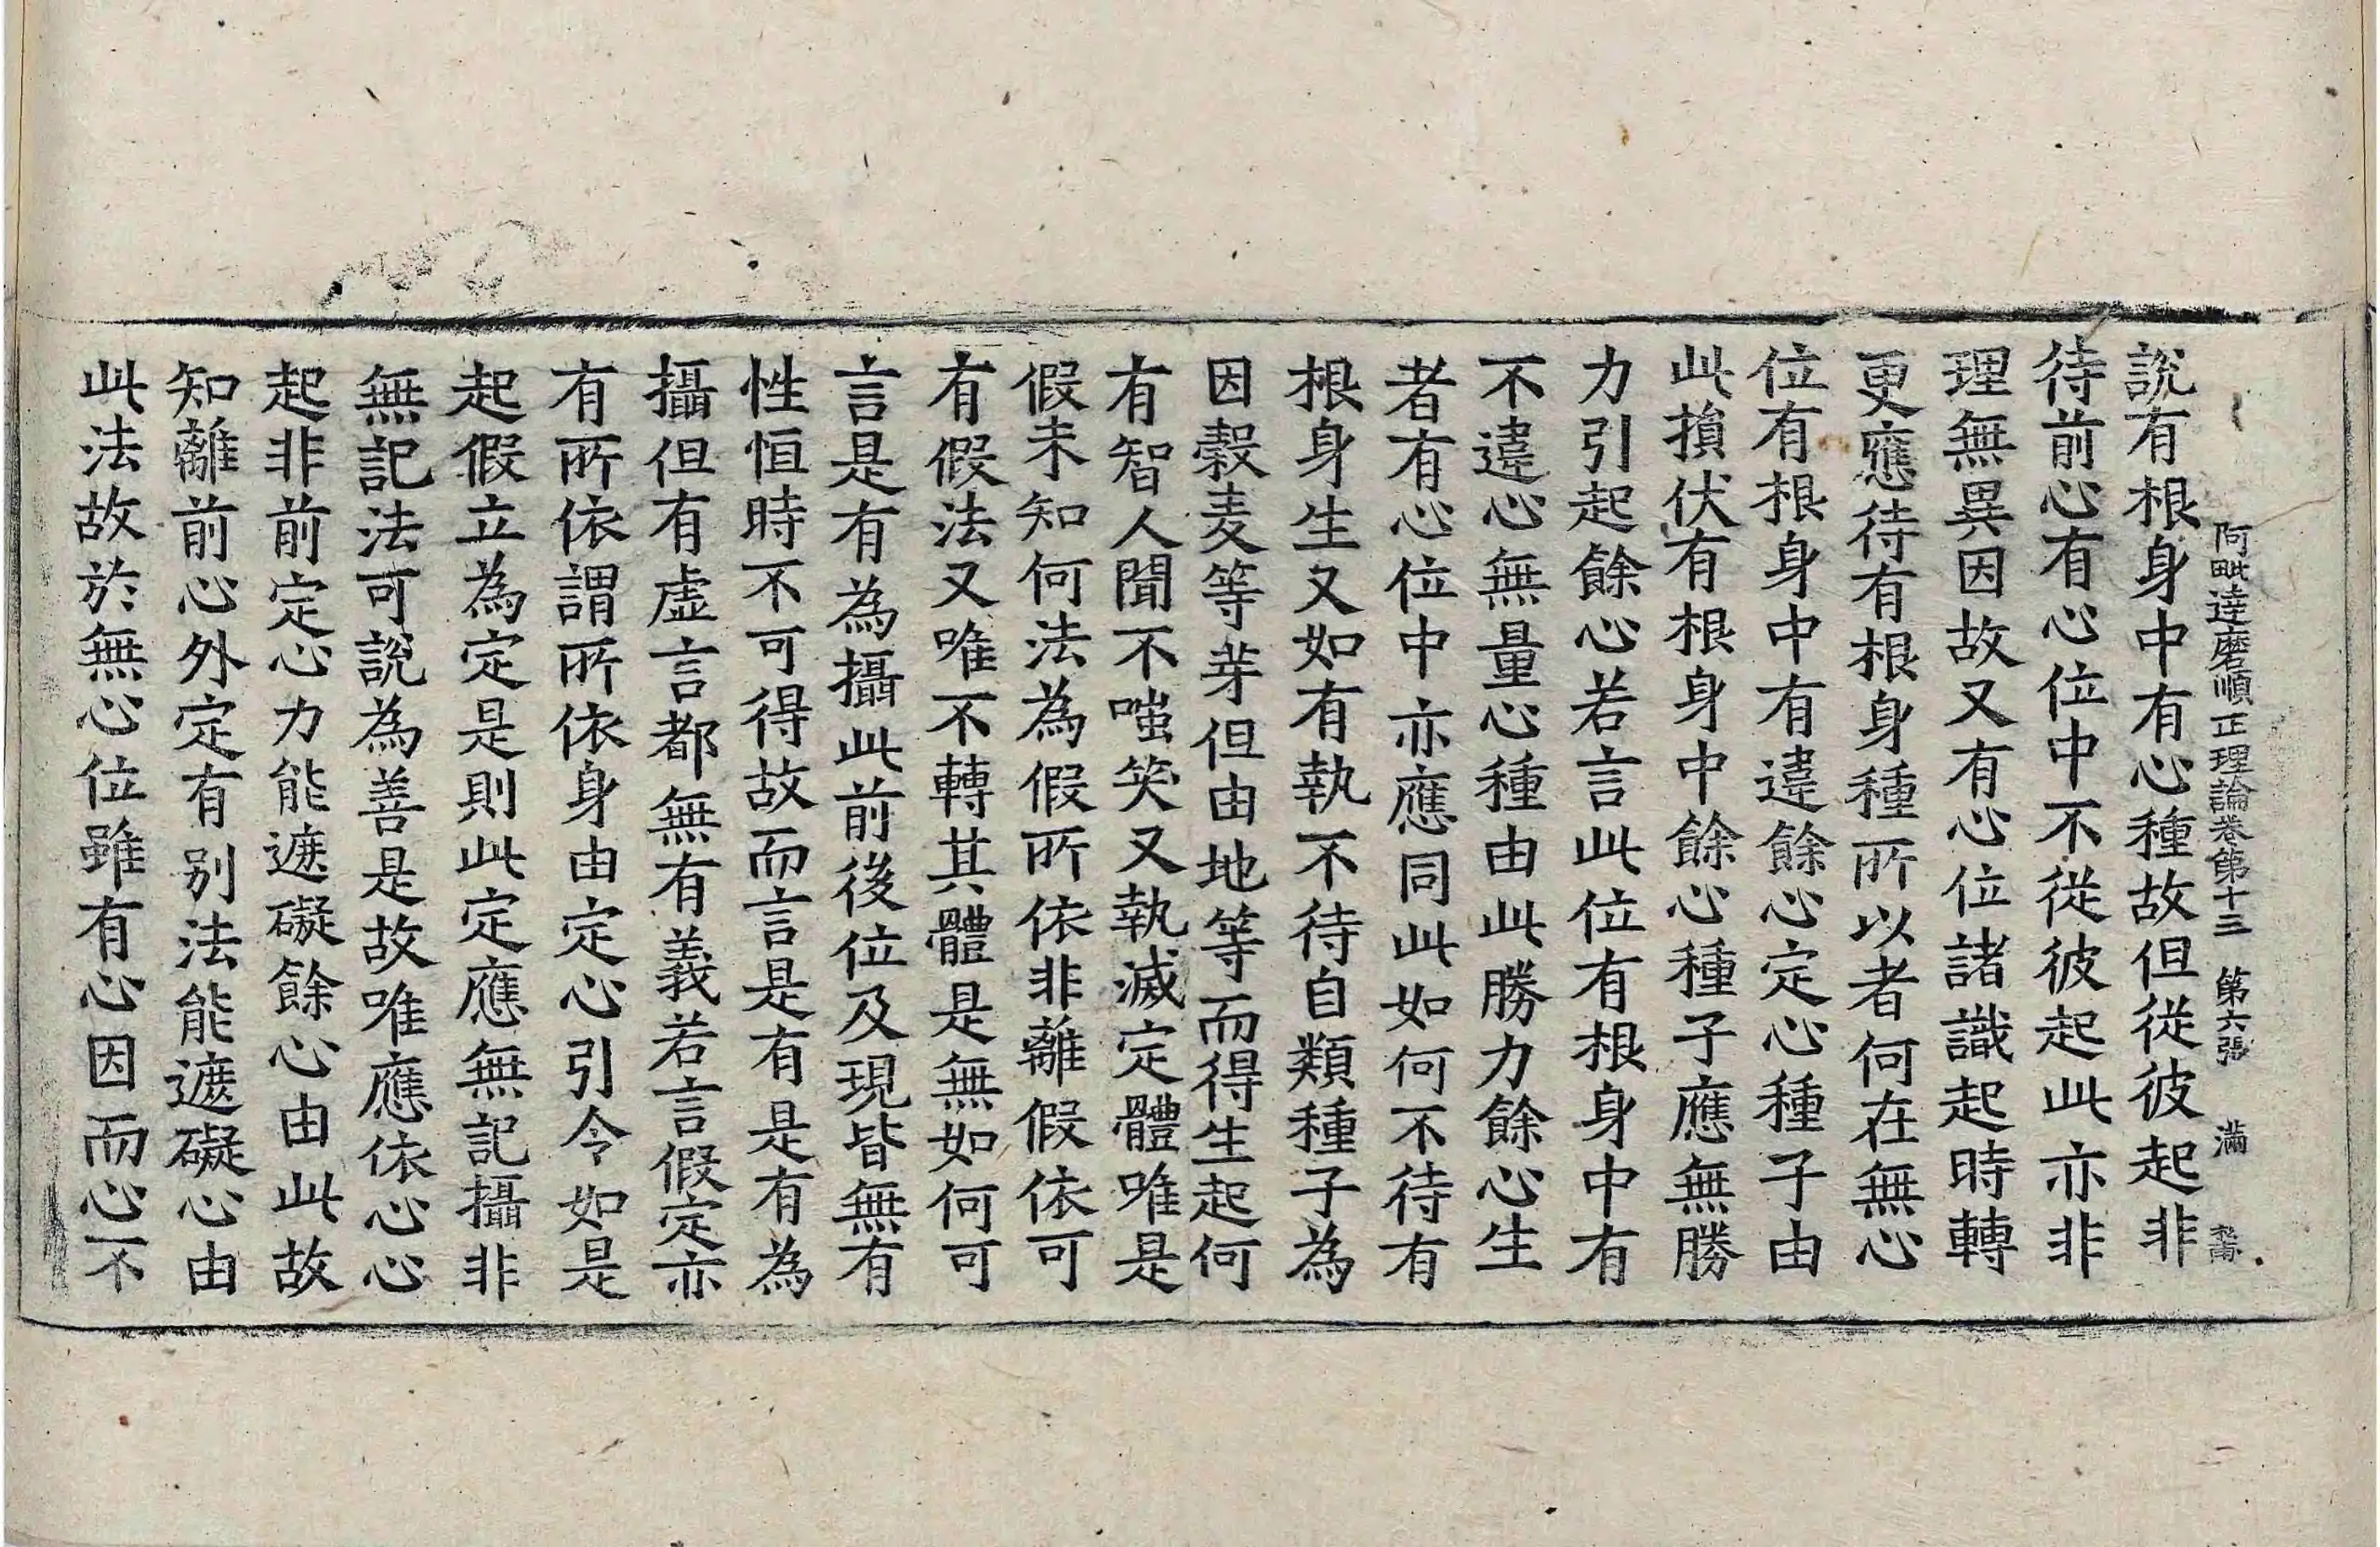 阿毗達磨順正理論卷第十三　第六張　滿
說有根身中有心種故但從彼起非
待前心有心位中不從彼起此亦非
理無異因故又有心位諸識起時轉
更應待有根身種所以者何在無心
位有根身中有違餘心定心種子由
此損伏有根身中餘心種子應無勝
力引起餘心若言此位有根身中有
不違心無量心種由此勝力餘心生
者有心位中亦應同此如何不待有
根身生又如有執不待自類種子為
因穀麦等芽但由地等而得生起何
有智人聞不嗤笑又執滅定體唯是
假未知何法為假所依非離假依可
有假法又唯不轉其體是無如何可
言是有為攝此前後位及現皆無有
性恒時不可得故而言是有是有為
攝但有虛言都無有義若言假定亦
有所依謂所依身由定心引令如是
起假立為定是則此定應無記攝非
無記法可說為善是故唯應依心心
起非前定心力能遮礙餘心由此故
知離前心外定有別法能遮礙心由
此法故於無心位雖有心因而心不